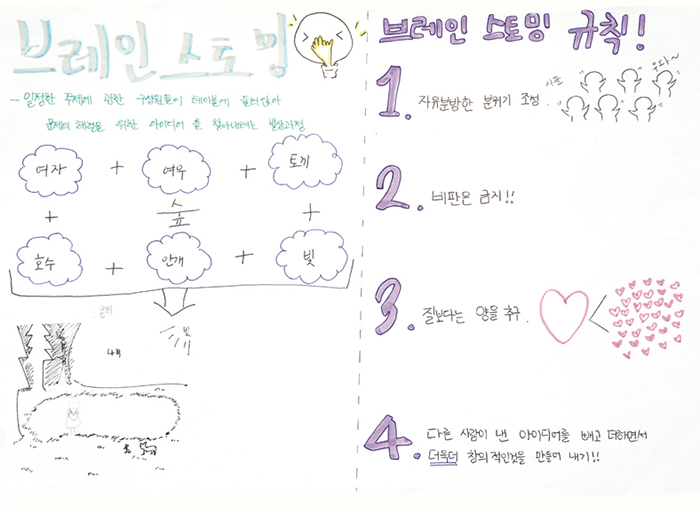 브레인 스토밍
- 일정한 주제에 관한 구성원들이 테이블에 둘러앉아
문제의 해결을 위한 아이디어 를 찾아내려는 발상과정
여자 + 여우 + 토끼
+ 숲 +
호수 + 안개 + 빛
빛
나무
브레인 스토밍 규칙!
1. 자유분방한 분위기 조성
우와~
2. 비판은 금지!!
3. 질보다는 양을 추구
4. 다른 사람이 낸 아이디어를 빼고 더하면서
더욱더 창의적인것을 만들어 내기!!